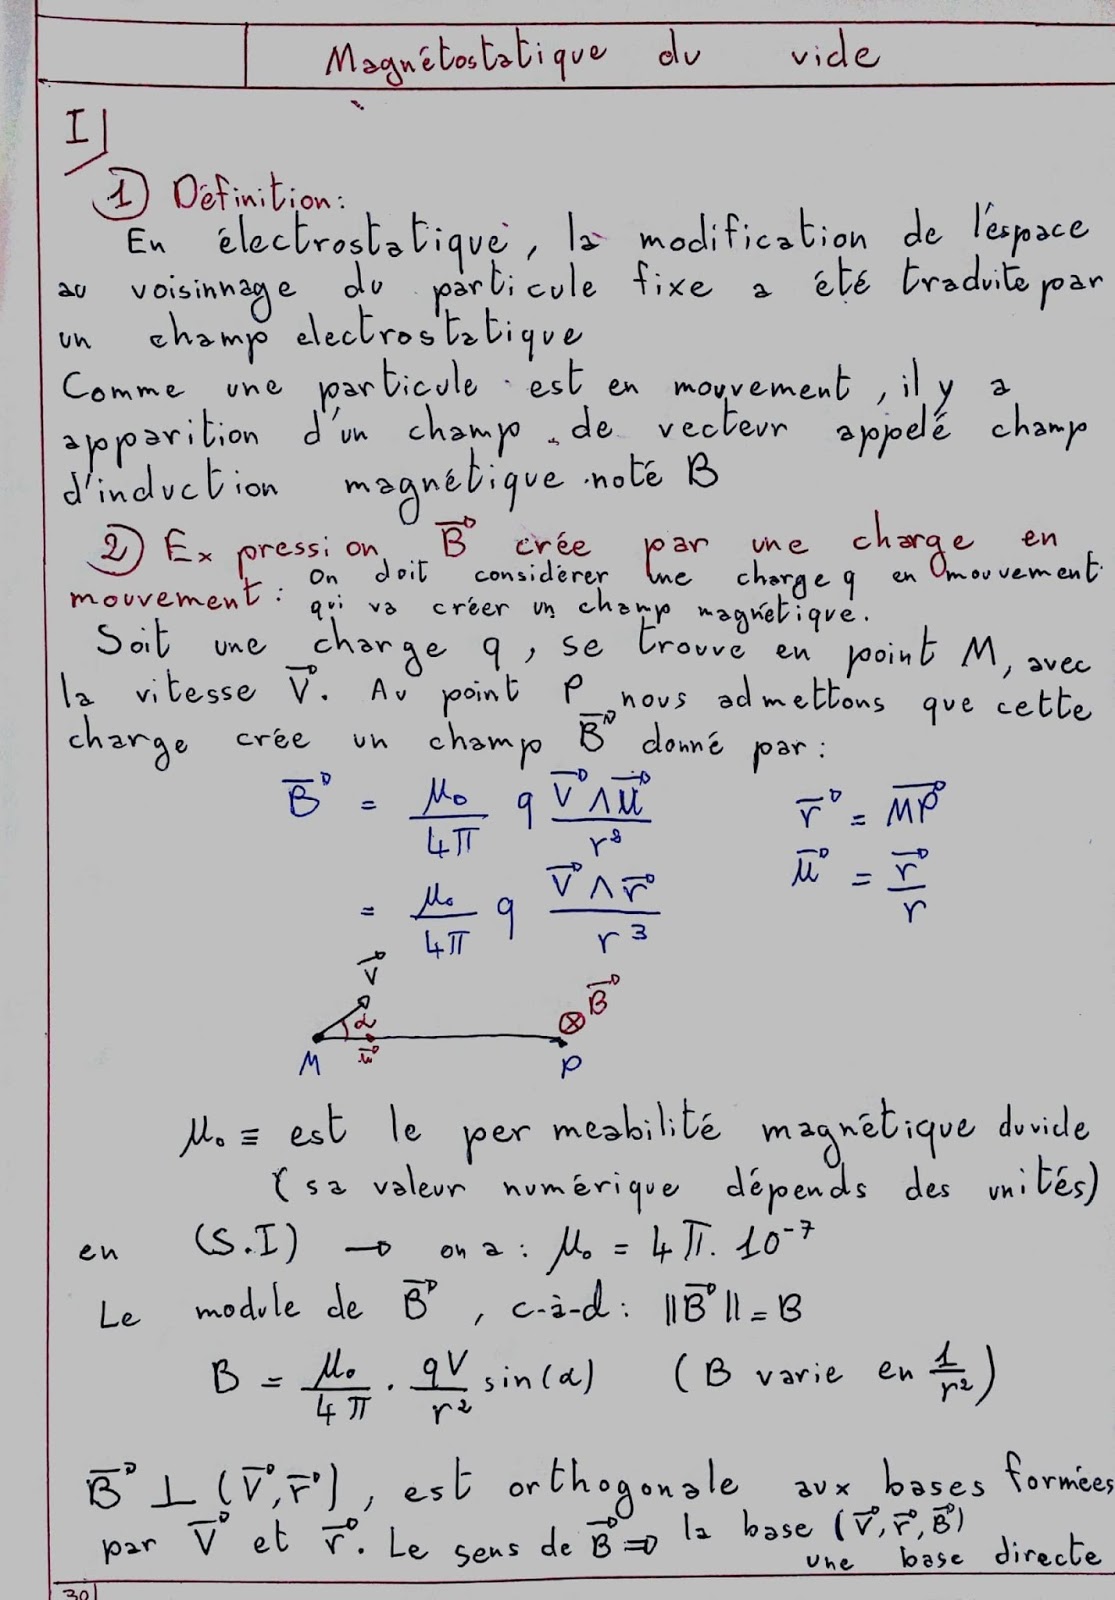 Magnétostatique du vide
I
① Définition:
En électrostatique, la modification de l'éspace
au voisinnage du particule fixe a été traduite par
un champ electrostatique
Comme une particule est en mouvement, il y a
apparition d'un champ de vecteur appelé champ
d'induction magnétique noté B
② Expression B⃗ crée par une charge en
mouvement: On doit considérer une charge q en mouvement
qui va créer un champ magnétique.
Soit une charge q, se trouve en point M, avec
la vitesse V⃗. Au point P nous admettons que cette
charge crée un champ B⃗ donné par:
B⃗ = μ₀/4π q V⃗∧u⃗/r² r⃗ = MP⃗
= μ₀/4π q V⃗∧r⃗/r³ u⃗ = r⃗/r
V⃗
α B⃗
M u⃗ P
μ₀ ≡ est le permeabilité magnétique du vide
(sa valeur numérique dépends des unités)
en (S.I) → on a: μ₀ = 4π. 10⁻⁷
Le module de B⃗, c-à-d: ||B⃗|| = B
B = μ₀/4π . qV/r² sin(α) (B varie en 1/r²)
B⃗ ⊥ (V⃗, r⃗), est orthogonale aux bases formées
par V⃗ et r⃗. Le sens de B⃗ ⇒ la base (V⃗, r⃗, B⃗)
une base directe
30